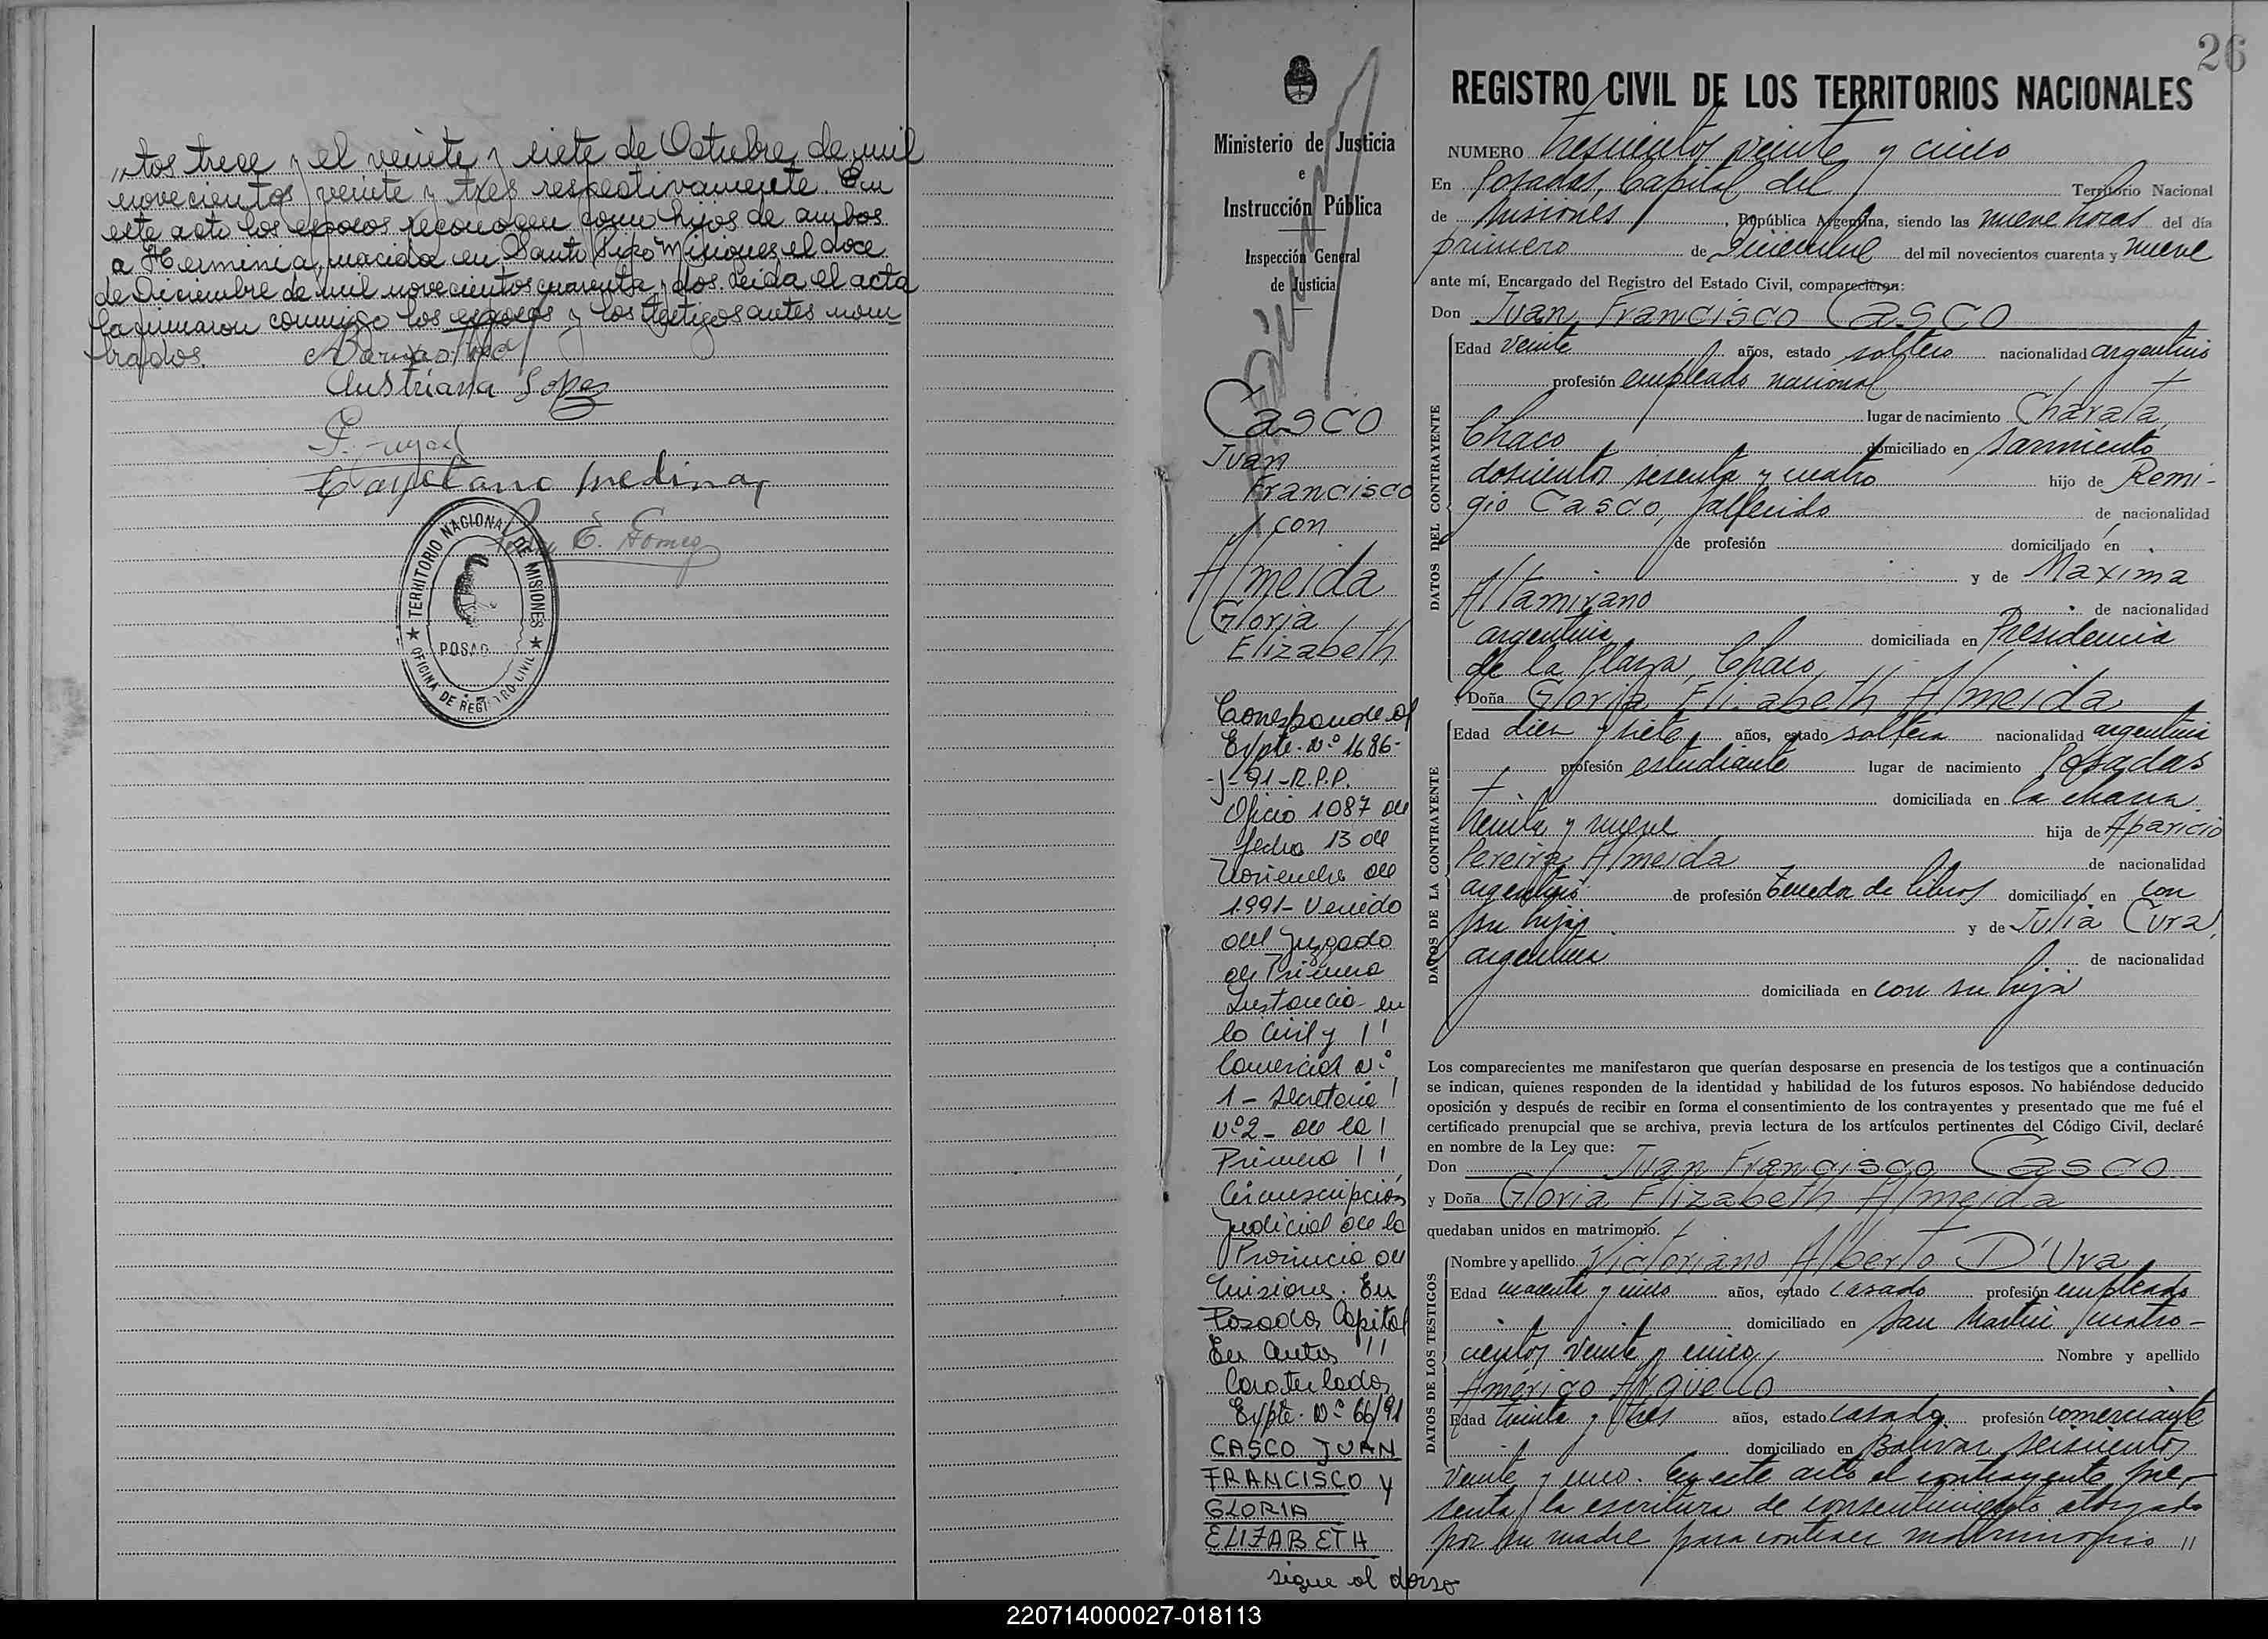 „tos trece y el veinte y siete de Octubre de mil
novecientos veinte y tres respectivamente. En
este acto los esposos reconocen como hijos de ambos
a Herminia, nacida en Santo Pipó Misiones, el doce
de Diciembre de mil novecientos cuarenta y dos. Leida el acta
la firmaron conmigo los esposos y los testigos antes nom=
brados.
Austriana Lopez
Cayetano Medina
E. Gomez
TERRITORIO NACIONAL DE MISIONES
POSAD
OFICINA DE REGISTRO CIVIL
26
Ministerio de Justicia
e
Instrucción Pública
Inspección General
de Justicia
Casco
Juan
Francisco
con
Almeida
Gloria
Elizabeth
Corresponde al
Expte. Nº 1686-
-J-91-R.P.P.
Oficio 1087 de
fecha 13 de
Noviembre de
1991- Venido
del Juzgado
de Primera
Instancia en
lo Civil y
Comercial Nº
1- Secretaria
Nº2- de la
Primera
Circunscripción
Judicial de la
Provincia de
Misiones. En
Posadas Capital
En autos
Caratulados
Expte. Nº 66/91
CASCO JUAN
FRANCISCO y
GLORIA
ELIZABETH
sigue al dorso
REGISTRO CIVIL DE LOS TERRITORIOS NACIONALES
NUMERO trescientos veinte y cinco
En Posadas, Capital del Territorio Nacional
de Misiones, República Argentina, siendo las nueve horas del día
primero de Diciembre del mil novecientos cuarenta y nueve
ante mí, Encargado del Registro del Estado Civil, comparecieron:
Don Juan Francisco Casco
DATOS DEL CONTRAYENTE
Edad veinte años, estado soltero nacionalidad argentino
profesión empleado nacional
lugar de nacimiento Charata,
Chaco domiciliado en Sarmiento
doscientos sesenta y cuatro hijo de Remi-
gio Casco, fallecido de nacionalidad
de profesión domiciliado en
y de Maxima
Altamirano de nacionalidad
argentina domiciliada en Presidencia
de la Plaza, Chaco,
y Doña Gloria Elizabeth Almeida
DATOS DE LA CONTRAYENTE
Edad diez y siete años, estado soltera nacionalidad argentina
profesión estudiante lugar de nacimiento Posadas
domiciliada en la chacra
treinta y nueve hija de Aparicio
Pereira Almeida de nacionalidad
argentino de profesión tenedor de libros domiciliado en con
su hija y de Julia Cura,
argentina de nacionalidad
domiciliada en con su hija
Los comparecientes me manifestaron que querían desposarse en presencia de los testigos que a continuación
se indican, quienes responden de la identidad y habilidad de los futuros esposos. No habiéndose deducido
oposición y después de recibir en forma el consentimiento de los contrayentes y presentado que me fué el
certificado prenupcial que se archiva, previa lectura de los artículos pertinentes del Código Civil, declaré
en nombre de la Ley que:
Don Juan Francisco Casco
y Doña Gloria Elizabeth Almeida
quedaban unidos en matrimonio.
DATOS DE LOS TESTIGOS
Nombre y apellido Victoriano Alberto D'Uva
Edad cuarenta y cinco años, estado casado profesión empleado
domiciliado en San Martin cuatro-
cientos veinte y cinco Nombre y apellido
Américo Argüello
Edad treinta y tres años, estado casado profesión comerciante
domiciliado en Bolivar seiscientos
veinte y cinco. En este acto el contrayente pre-
senta la escritura de consentimiento otorgado
por su madre para contraer matrimonio //
220714000027-018113